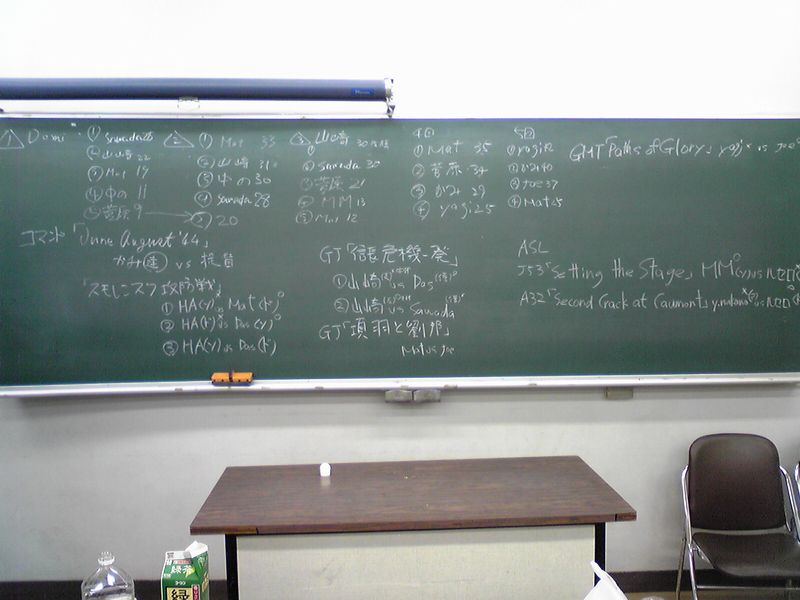 ① Domi
① Sawada
② 山崎 22
③ Mat 19
④ 中の 11
⑤ 菅原 9
②
① Mat 33
② 山崎 31
③ 中の 30
④ Sawada 28
⑤ 20
③
① 山崎 30
② Sawada 30
③ 菅原 21
④ MM 13
⑤ Mat 12
① Mat 35
② 菅原 34
③ かみ 29
④ yagi 25
① yagi
② かみ 40
③ joe 37
④ Mat 5
GMT「Paths of Glory」 yagi vs joe
コマンド「June August '44」
かみ(連) vs 提督
「スモレンスク攻防戦」
① HA(ソ) vs Mat(ド)
② HA(ド) vs Das(ソ)
③ HA(ソ) vs Das(ド)
GJ「信長危機一発」
① 山崎 vs Das
② 山崎 vs Sawada
GJ「項羽と劉邦」
Mat vs joe
ASL
J53「Setting the Stage」 MM vs
A32「Second Crack at Caumont」 y.nakano vs
緑茶
緑